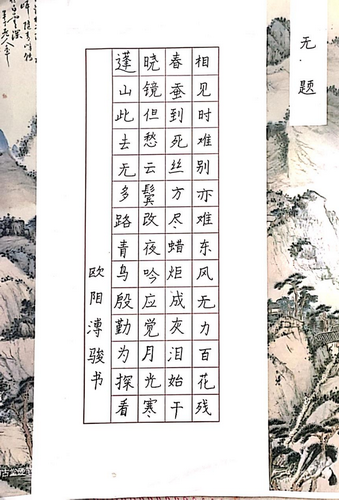 无题
相见时难别亦难东风无力百花残
春蚕到死丝方尽蜡炬成灰泪始干
晓镜但愁云鬓改夜吟应觉月光寒
蓬山此去无多路青鸟殷勤为探看
欧阳溥骏书